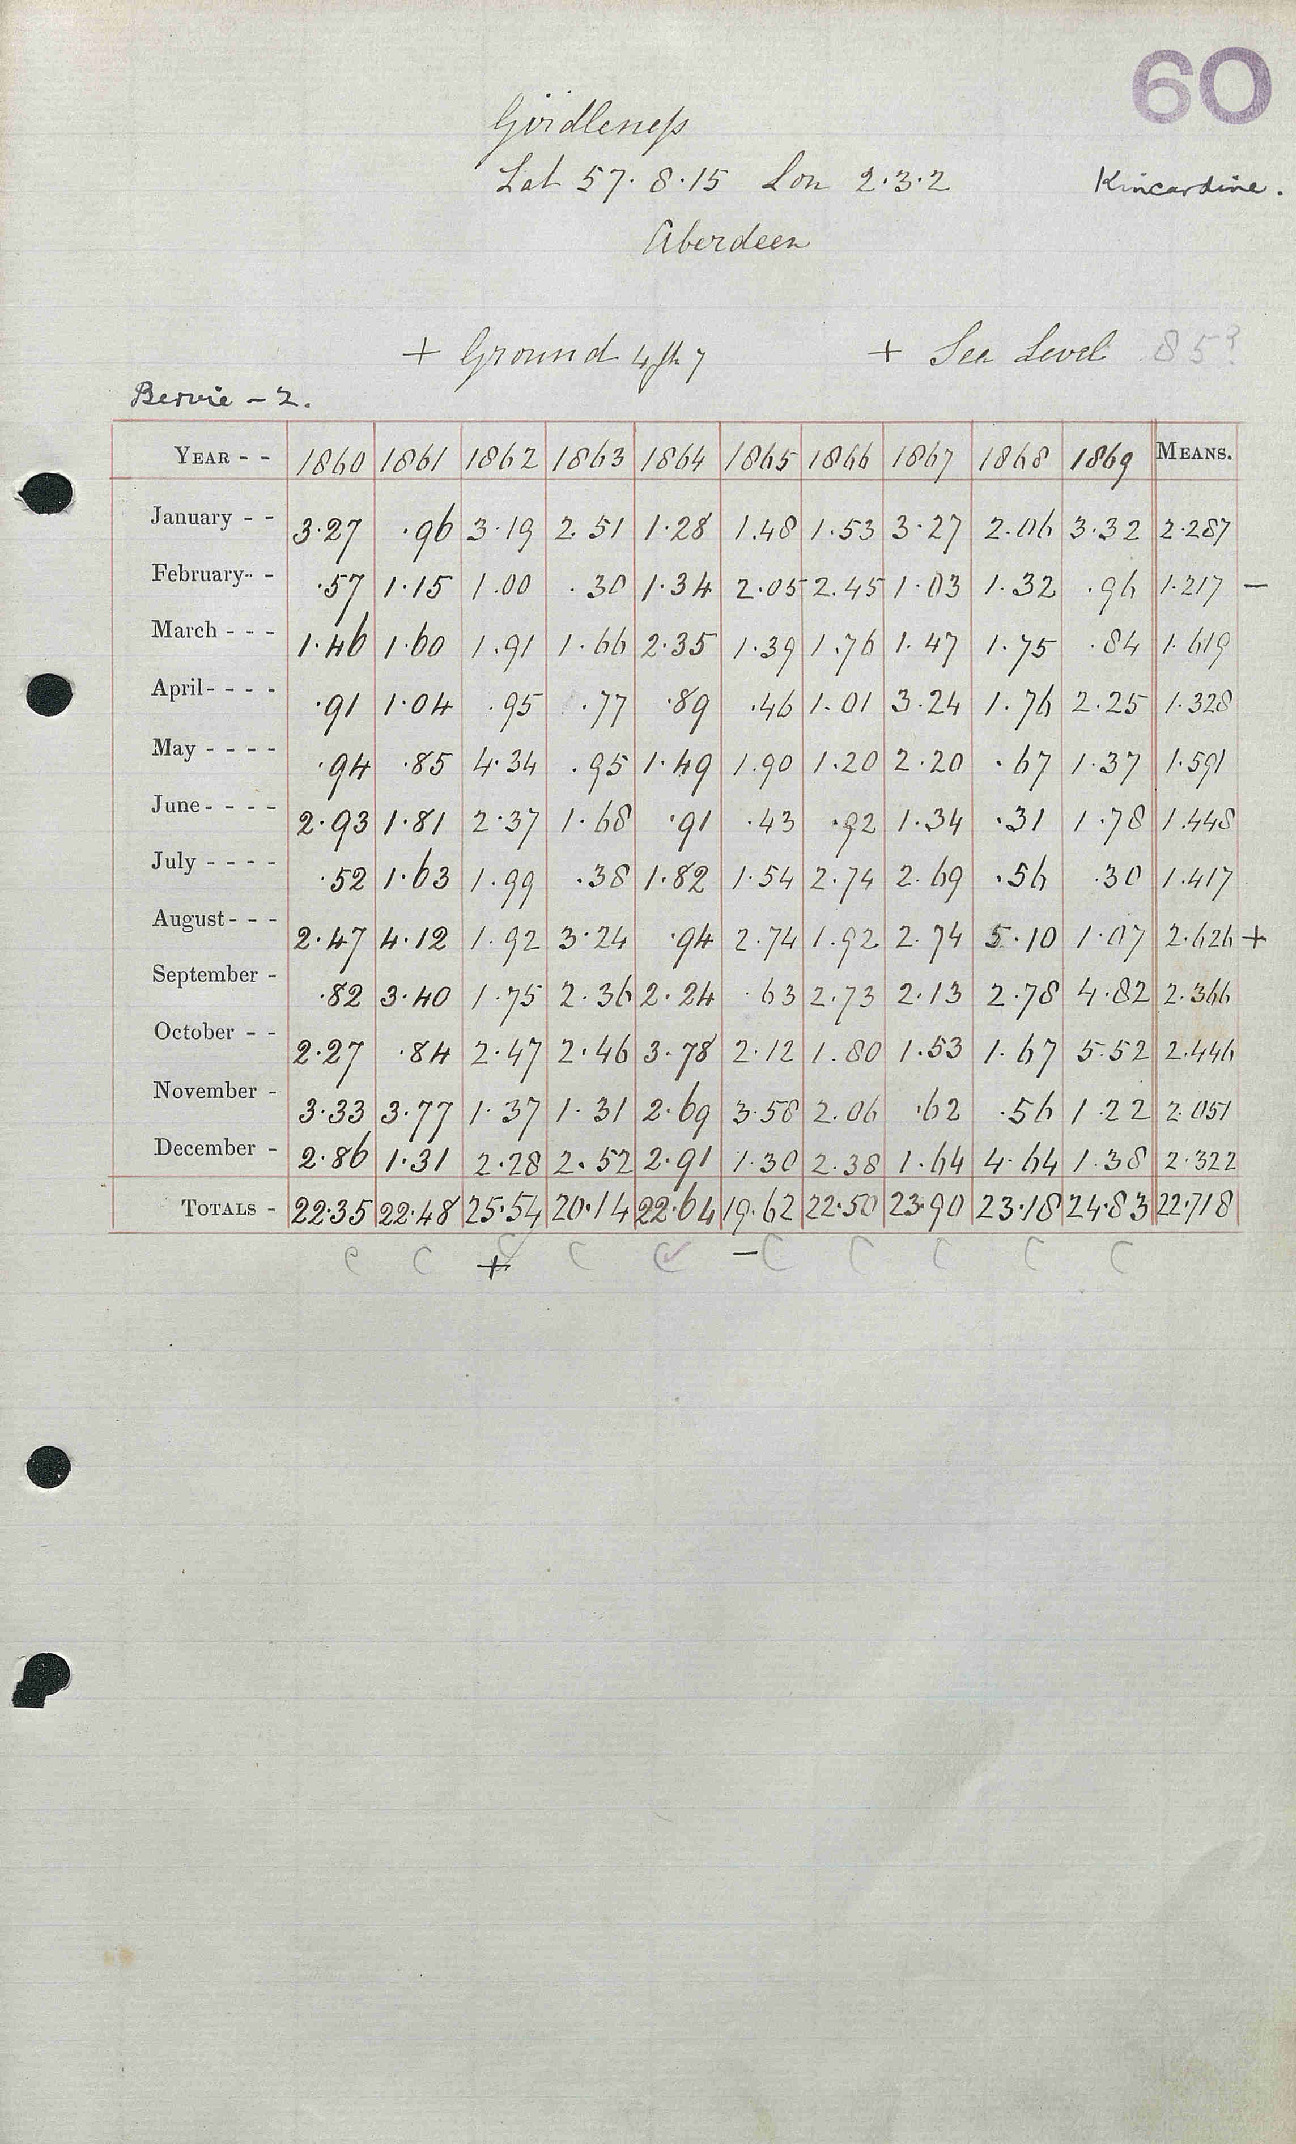 60
Girdleness
Lat 57. 8.15 Lon 2.3.2 Kincardine.
Aberdeen
+ Ground 4 ft 7 + Sea Level 85
Bervie - 2.
YEAR - - 1860 1861 1862 1863 1864 1865 1866 1867 1868 1869 MEANS.
January - - 3.27 .96 3.19 2.51 1.28 1.48 1.53 3.27 2.06 3.32 2.287
February - - .57 1.15 1.00 .30 1.34 2.05 2.45 1.03 1.32 .96 1.217 -
March - - - 1.46 1.60 1.91 1.66 2.35 1.39 1.76 1.47 1.75 .84 1.619
April - - - - .91 1.04 .95 .77 .89 .46 1.01 3.24 1.76 2.25 1.328
May - - - - .94 .85 4.34 .95 1.49 1.90 1.20 2.20 .67 1.37 1.591
June - - - - 2.93 1.81 2.37 1.68 .91 .43 .92 1.34 .31 1.78 1.448
July - - - - .52 1.63 1.99 .38 1.82 1.54 2.74 2.69 .56 .30 1.417
August - - - 2.47 4.12 1.92 3.24 .94 2.74 1.92 2.74 5.10 1.07 2.626 +
September - .82 3.40 1.75 2.36 2.24 .63 2.73 2.13 2.78 4.82 2.366
October - - 2.27 .84 2.47 2.46 3.78 2.12 1.80 1.53 1.67 5.52 2.446
November - 3.33 3.77 1.37 1.31 2.69 3.58 2.06 .62 .56 1.22 2.051
December - 2.86 1.31 2.28 2.52 2.91 1.30 2.38 1.64 4.64 1.38 2.322
TOTALS - 22.35 22.48 25.54 20.14 22.64 19.62 22.50 23.90 23.18 24.83 22.718
C C + C C C - C C C C C